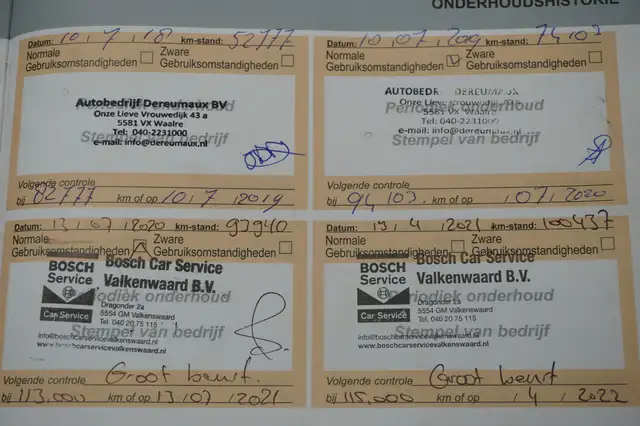 ONDERHOUDSHISTORIE
Datum: 10, 7, 18 km-stand: 52777
Normale Zware
Gebruiksomstandigheden Gebruiksomstandigheden
Autobedrijf Dereumaux BV
Periodiek onderhoud
Onze Lieve Vrouwedijk 43 a
5581 VX Waalre
Tel: 040-2231000
Stempel van bedrijf
e-mail: info@dereumaux.nl
Volgende controle
bij 82777 km of op 10, 7, 2019
Datum: 10, 07, 2019 km-stand: 74103
Normale Zware
Gebruiksomstandigheden Gebruiksomstandigheden
AUTOBEDR DEREUMAUX
Periodiek onderhoud
Onze Lieve Vrouwedijk 43
5581 VX Waalre
Tel: 040-2231000
e-mail: info@dereumaux.nl
Stempel van bedrijf
Volgende controle
bij 94103. km of op , 07, 2020
Datum: 13, 07, 2020 km-stand: 93940
Normale Zware
Gebruiksomstandigheden Gebruiksomstandigheden
BOSCH Service
Bosch Car Service
Valkenwaard B.V.
Periodiek onderhoud
Dragonder 2a
5554 GM Valkenswaard
Car Service
Tel. 040 20 75 115
Stempel van bedrijf
info@boschcarservicevalkenswaard.nl
www.boschcarservicevalkenswaard.nl
Volgende controle Groot beurt.
bij 113.000 km of op 13, 07, 2021
Datum: 19, 4, 2021 km-stand: 100437
Normale Zware
Gebruiksomstandigheden Gebruiksomstandigheden
BOSCH Service
Bosch Car Service
Valkenwaard B.V.
Periodiek onderhoud
Dragonder 2a
5554 GM Valkenswaard
Car Service
Tel. 040 20 75 115
Stempel van bedrijf
info@boschcarservicevalkenswaard.nl
www.boschcarservicevalkenswaard.nl
Volgende controle Groot beurt
bij 115.000 km of op , 4, 2022